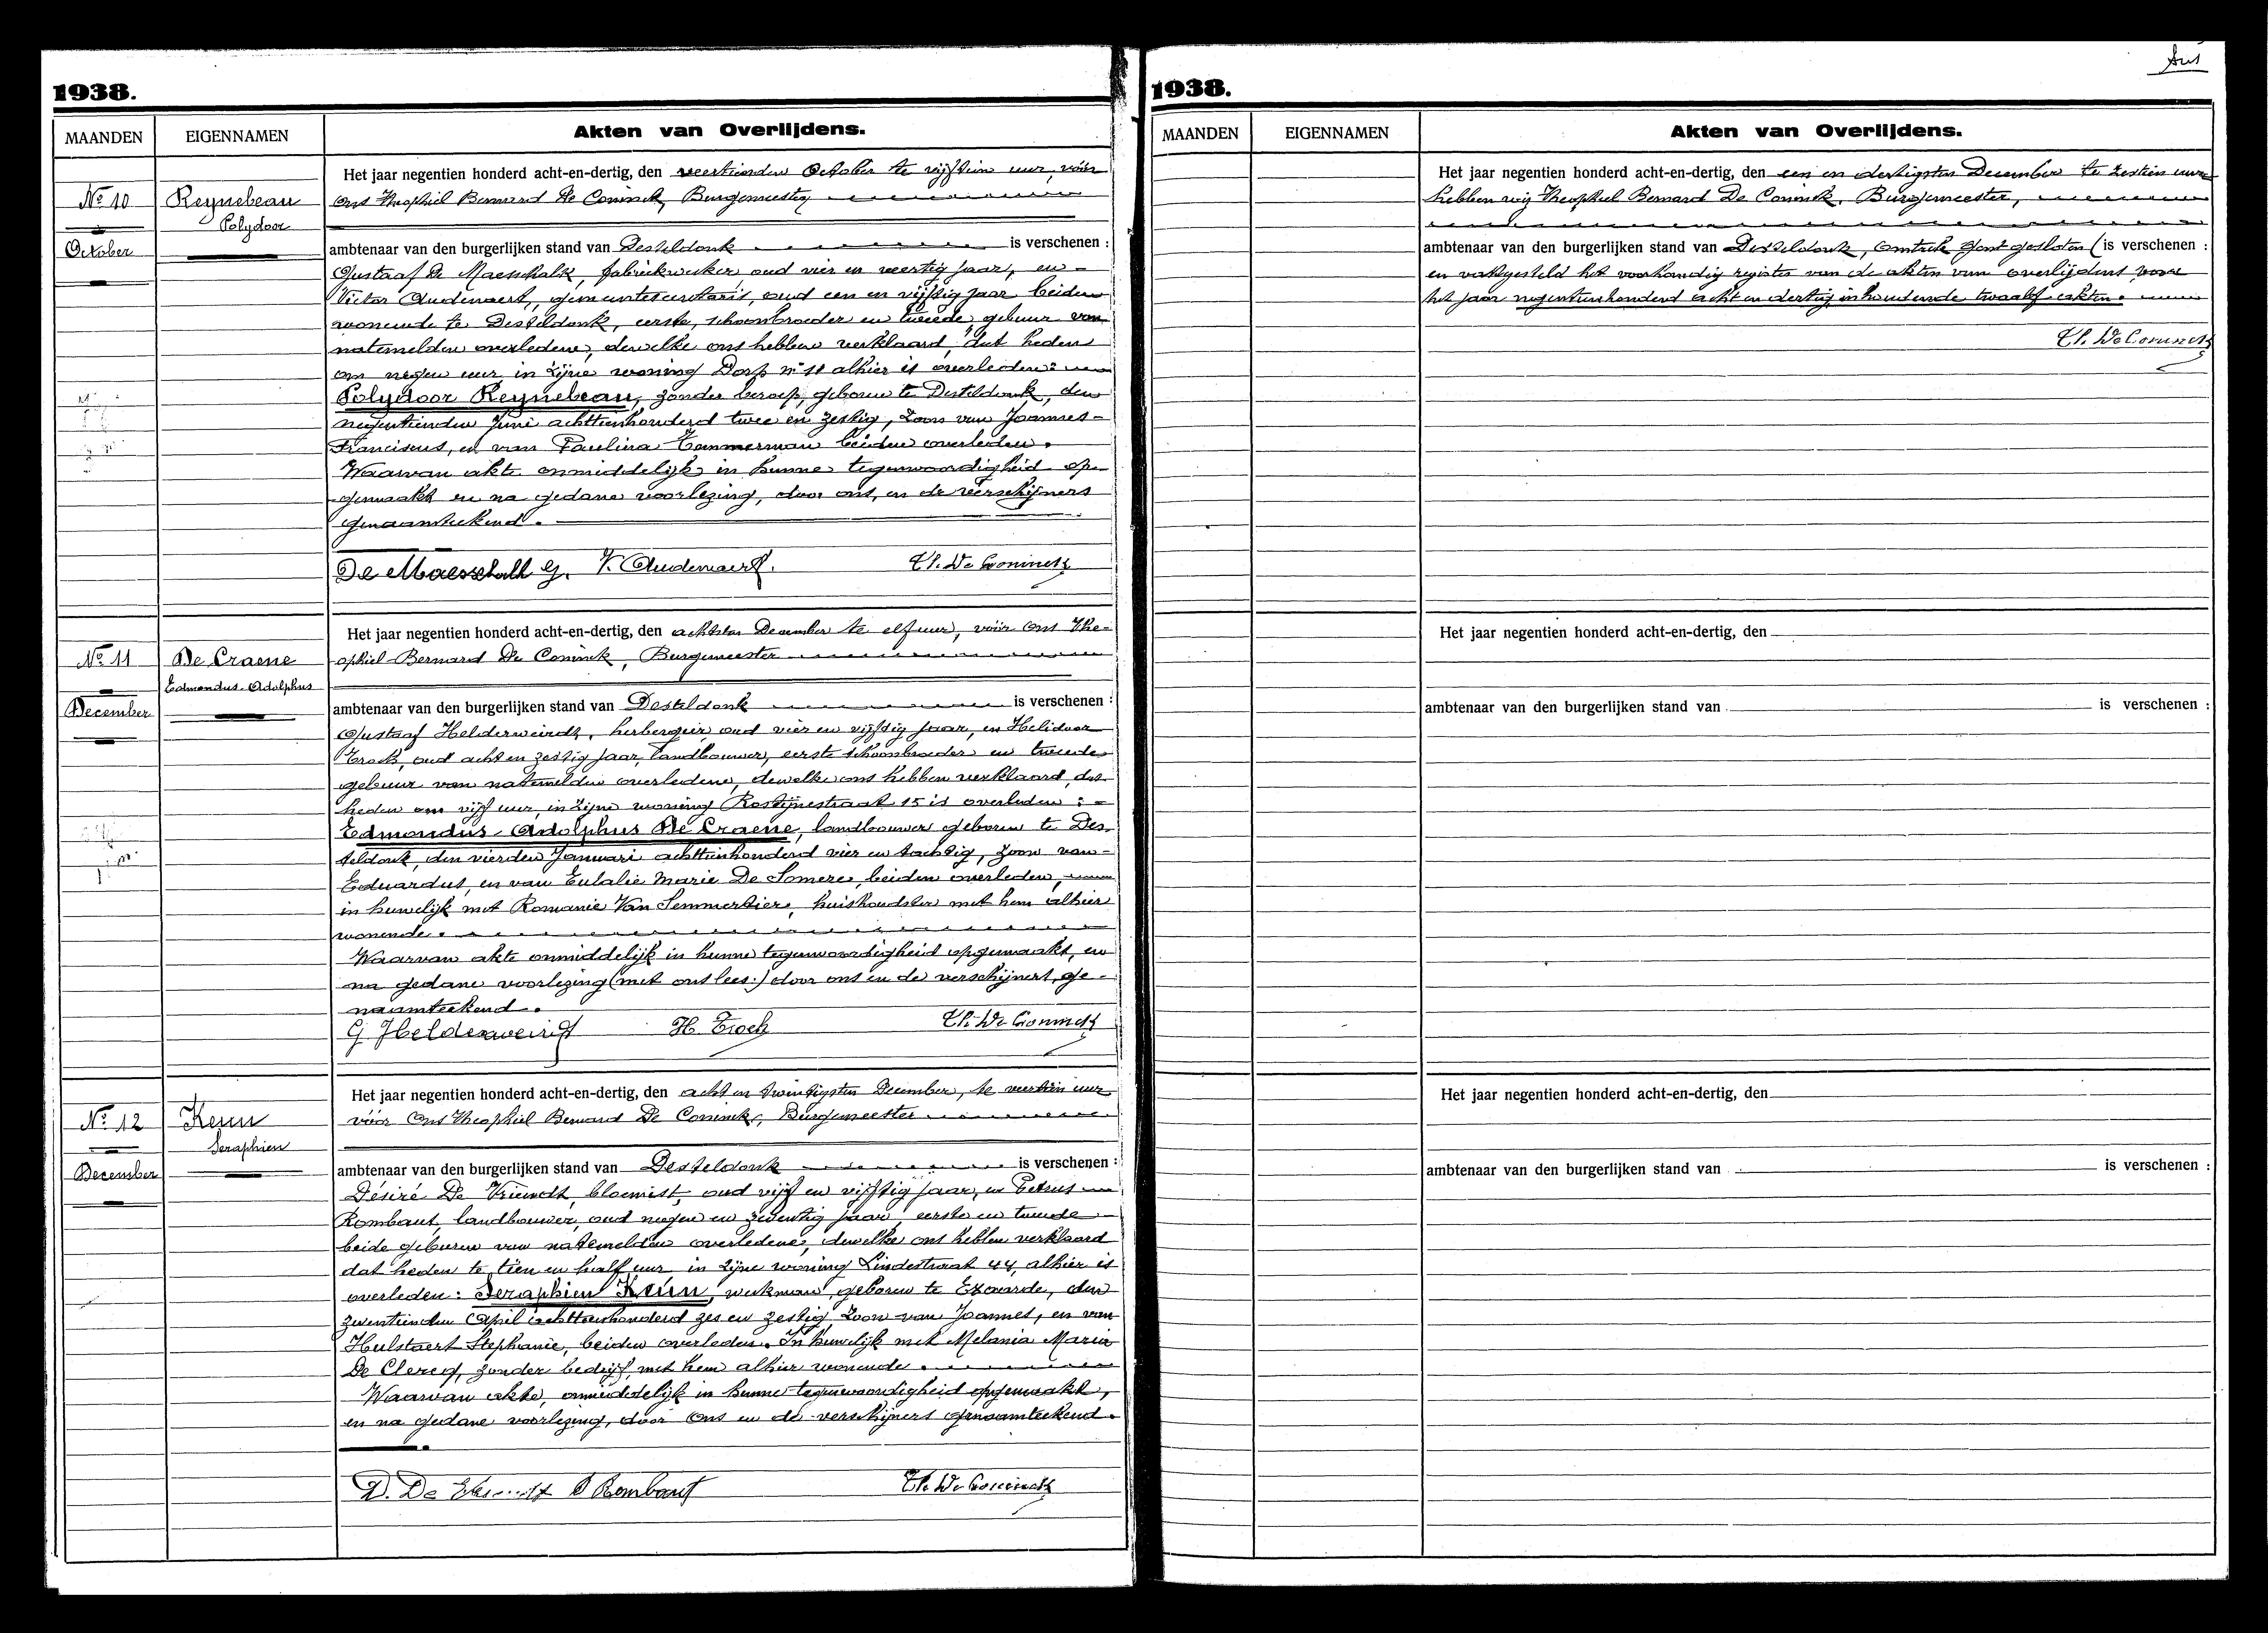 1938.
MAANDEN EIGENNAMEN Akten van Overlijdens.
Het jaar negentien honderd acht-en-dertig, den veertienden October te vijftien uur, vóór
Nº 10 Reynebeau ons Theophiel Bernard De Coninck, Burgemeester
Polydoor
October ambtenaar van den burgerlijken stand van Desteldonk is verschenen :
Gustaaf De Maeschalk, fabriekwerker, oud vier en veertig jaar, en
Victor Audenaert, gemeentesecretaris, oud een en vijftig jaar beiden
wonende te Desteldonk, eerste, schoonbroeder en tweede, gebuur van
natemelden overledene, dewelke ons hebben verklaard, dat heden
om negen uur, in zijne woning Dorp nr 11 alhier is overleden:
Polydoor Reynebeau, zonder beroep, geboren te Desteldonk, den
negentienden Juni achttienhonderd twee en zestig, zoon van Joannes-
Franciscus, en van Paulina Temmerman beiden overleden.
Waarvan akte onmiddelijk in hunne tegenwoordigheid op-
gemaakt en na gedane voorlezing, door ons, en de verschijners
genaamteekend.
De Maesschalk G. V. Audenaert. Th. De Coninck
Het jaar negentien honderd acht-en-dertig, den achtsten December te elf uur, vóór ons The-
Nº 11 De Craene ophiel Bernard De Coninck, Burgemeester
Edmondus-Adolphus
December ambtenaar van den burgerlijken stand van Desteldonk is verschenen :
Gustaaf Helderweirdt, herbergier, oud vier en vijftig jaar, en Helidoor
Troch, oud acht en zestig jaar, landbouwer, eerste schoonbroeder en tweede
gebuur van natemelden overledene, dewelke ons hebben verklaard, dat
heden om vijf uur, in zijne woning Rostijnestraat 15 is overleden :
Edmondus-Adolphus De Craene, landbouwer geboren te Des-
teldonk, den vierden Januari achttienhonderd vier en tachtig, zoon van
Eduardus, en van Eulalie Marie De Somere, beiden overleden,
in huwelijk met Romanie Van Semmertier, huishoudster met hem alhier
wonende.
Waarvan akte onmiddelijk in hunne tegenwoordigheid opgemaakt, en
na gedane voorlezing (met ons lees:) door ons en de verschijners, ge-
naamteekend.
G Helderweirdt H. Troch Th. De Coninck
Het jaar negentien honderd acht-en-dertig, den acht en twintigsten December, te veertien uur
Nº 12 Keun vóór Ons Theophiel Bernard De Coninck, Burgemeester
Seraphien
December ambtenaar van den burgerlijken stand van Desteldonk is verschenen :
Désiré De Vriendt, bloemist, oud vijf en vijftig jaar, en Petrus
Rombaut, landbouwer, oud negen en zeventig jaar, eerste en tweede
beide geburen van natemelden overledene, dewelke ons hebben verklaard
dat heden te tien en half uur in zijne woning Lindestraat 44, alhier is
overleden: Seraphien Keun, werkman, geboren te Exaarde, den
zeventienden April achttienhonderd zes en zestig, zoon van Joannes, en van
Hulstaert Stephanie, beiden overleden. In huwelijk met Melania Maria
De Clercq, zonder bedrijf, met hem alhier wonende.
Waarvan akte, onmiddelijk in hunne tegenwoordigheid opgemaakt,
en na gedane voorlezing, door Ons en de verschijners genaamteekend.
D. De Vriendt P Rombaut Th. De Coninck
1938.
MAANDEN EIGENNAMEN Akten van Overlijdens.
Het jaar negentien honderd acht-en-dertig, den een en dertigsten December te zestien uur
hebben wij Theophiel Bernard De Coninck, Burgemeester,
ambtenaar van den burgerlijken stand van Desteldonk, omtrek Gent gesloten (is verschenen :
en vastgesteld het voorhandig register van de akten van overlijdens voor
het jaar negentienhonderd acht en dertig, inhoudende twaalf akten.
Th. De Coninck
Het jaar negentien honderd acht-en-dertig, den
ambtenaar van den burgerlijken stand van is verschenen :
Het jaar negentien honderd acht-en-dertig, den
ambtenaar van den burgerlijken stand van is verschenen :